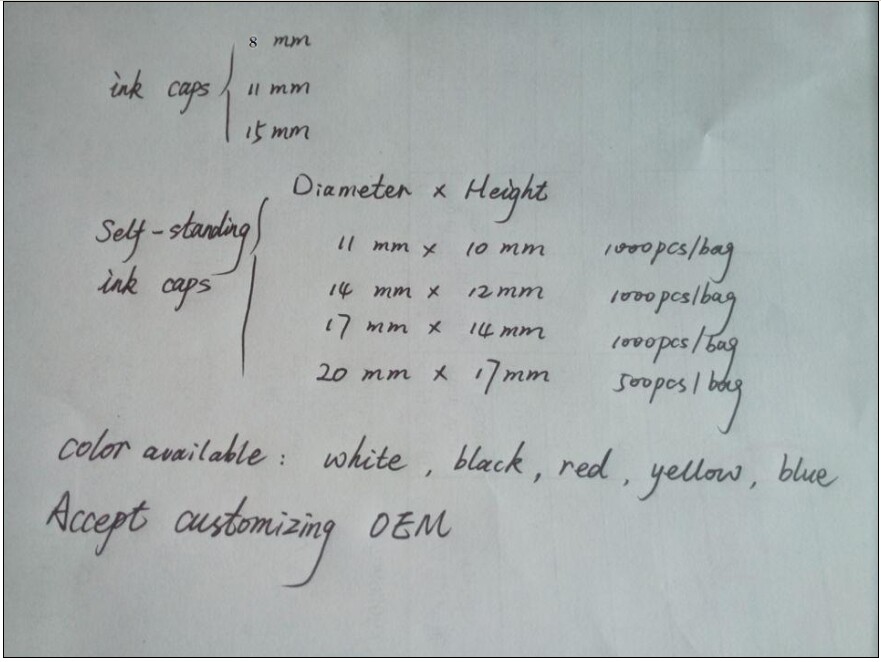 8 mm
ink caps 11 mm
15 mm
Diameter x Height
Self-standing
ink caps
11 mm x 10 mm 1000pcs/bag
14 mm x 12mm 1000pcs/bag
17 mm x 14mm 1000pcs/bag
20 mm x 17mm 500pcs/bag
color available : white , black , red , yellow , blue
Accept customizing OEM